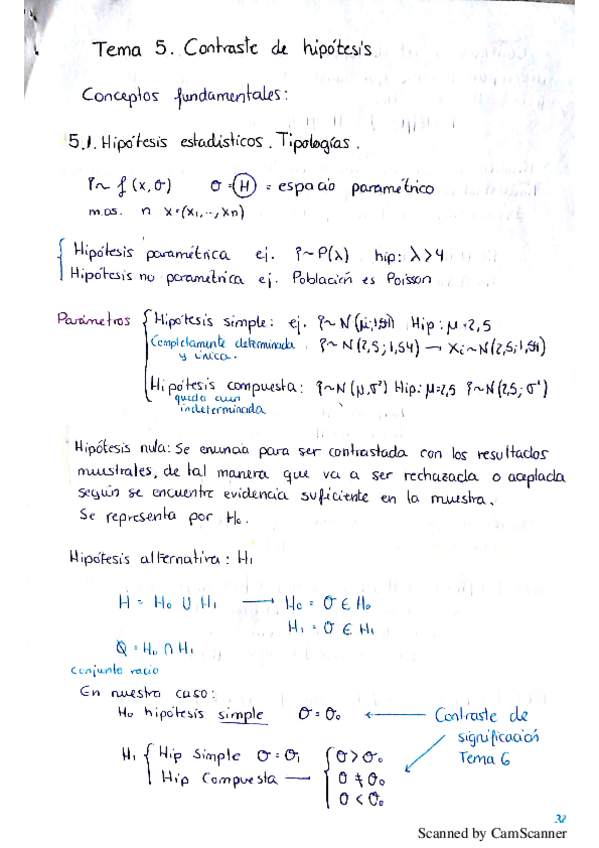 Tema 5. Contraste de hipótesis
Conceptos fundamentales:
5.1. Hipótesis estadísticos. Tipologías.
ξ ~ f (x, σ) σ = Ⓗ = espacio paramétrico
m.a.s. n x=(x1,..., xn)
Hipótesis paramétrica ej. ξ ~ P(λ) hip: λ > 4
Hipótesis no paramétrica ej. Población es Poisson
Parámetros
Hipótesis simple: ej. ξ ~ N(μ; 1,54) Hip: μ = 2,5
Completamente determinada ξ ~ N(2,5; 1,54) → Xi ~ N(2,5; 1,54)
y única.
Hipótesis compuesta: ξ ~ N(μ, σ²) Hip: μ=2,5 ξ ~ N(2,5; σ²)
queda aun
indeterminada
Hipótesis nula: Se enuncia para ser contrastada con los resultados
muestrales, de tal manera que va a ser rechazada o aceplada
según se encuentre evidencia suficiente en la muestra.
Se representa por H0.
Hipótesis alternativa: H1
H = H0 U H1 → H0 = σ ∈ H0
H1 = σ ∈ H1
∅ = H0 ∩ H1
conjunto vacio
En nuestro caso:
H0 hipótesis simple σ = σ0 ← Contraste de
significación
Tema 6
H1 { Hip Simple σ = σ1 { σ > σ0
Hip Compuesta — σ ≠ σ0
σ < σ0
32
Scanned by CamScanner